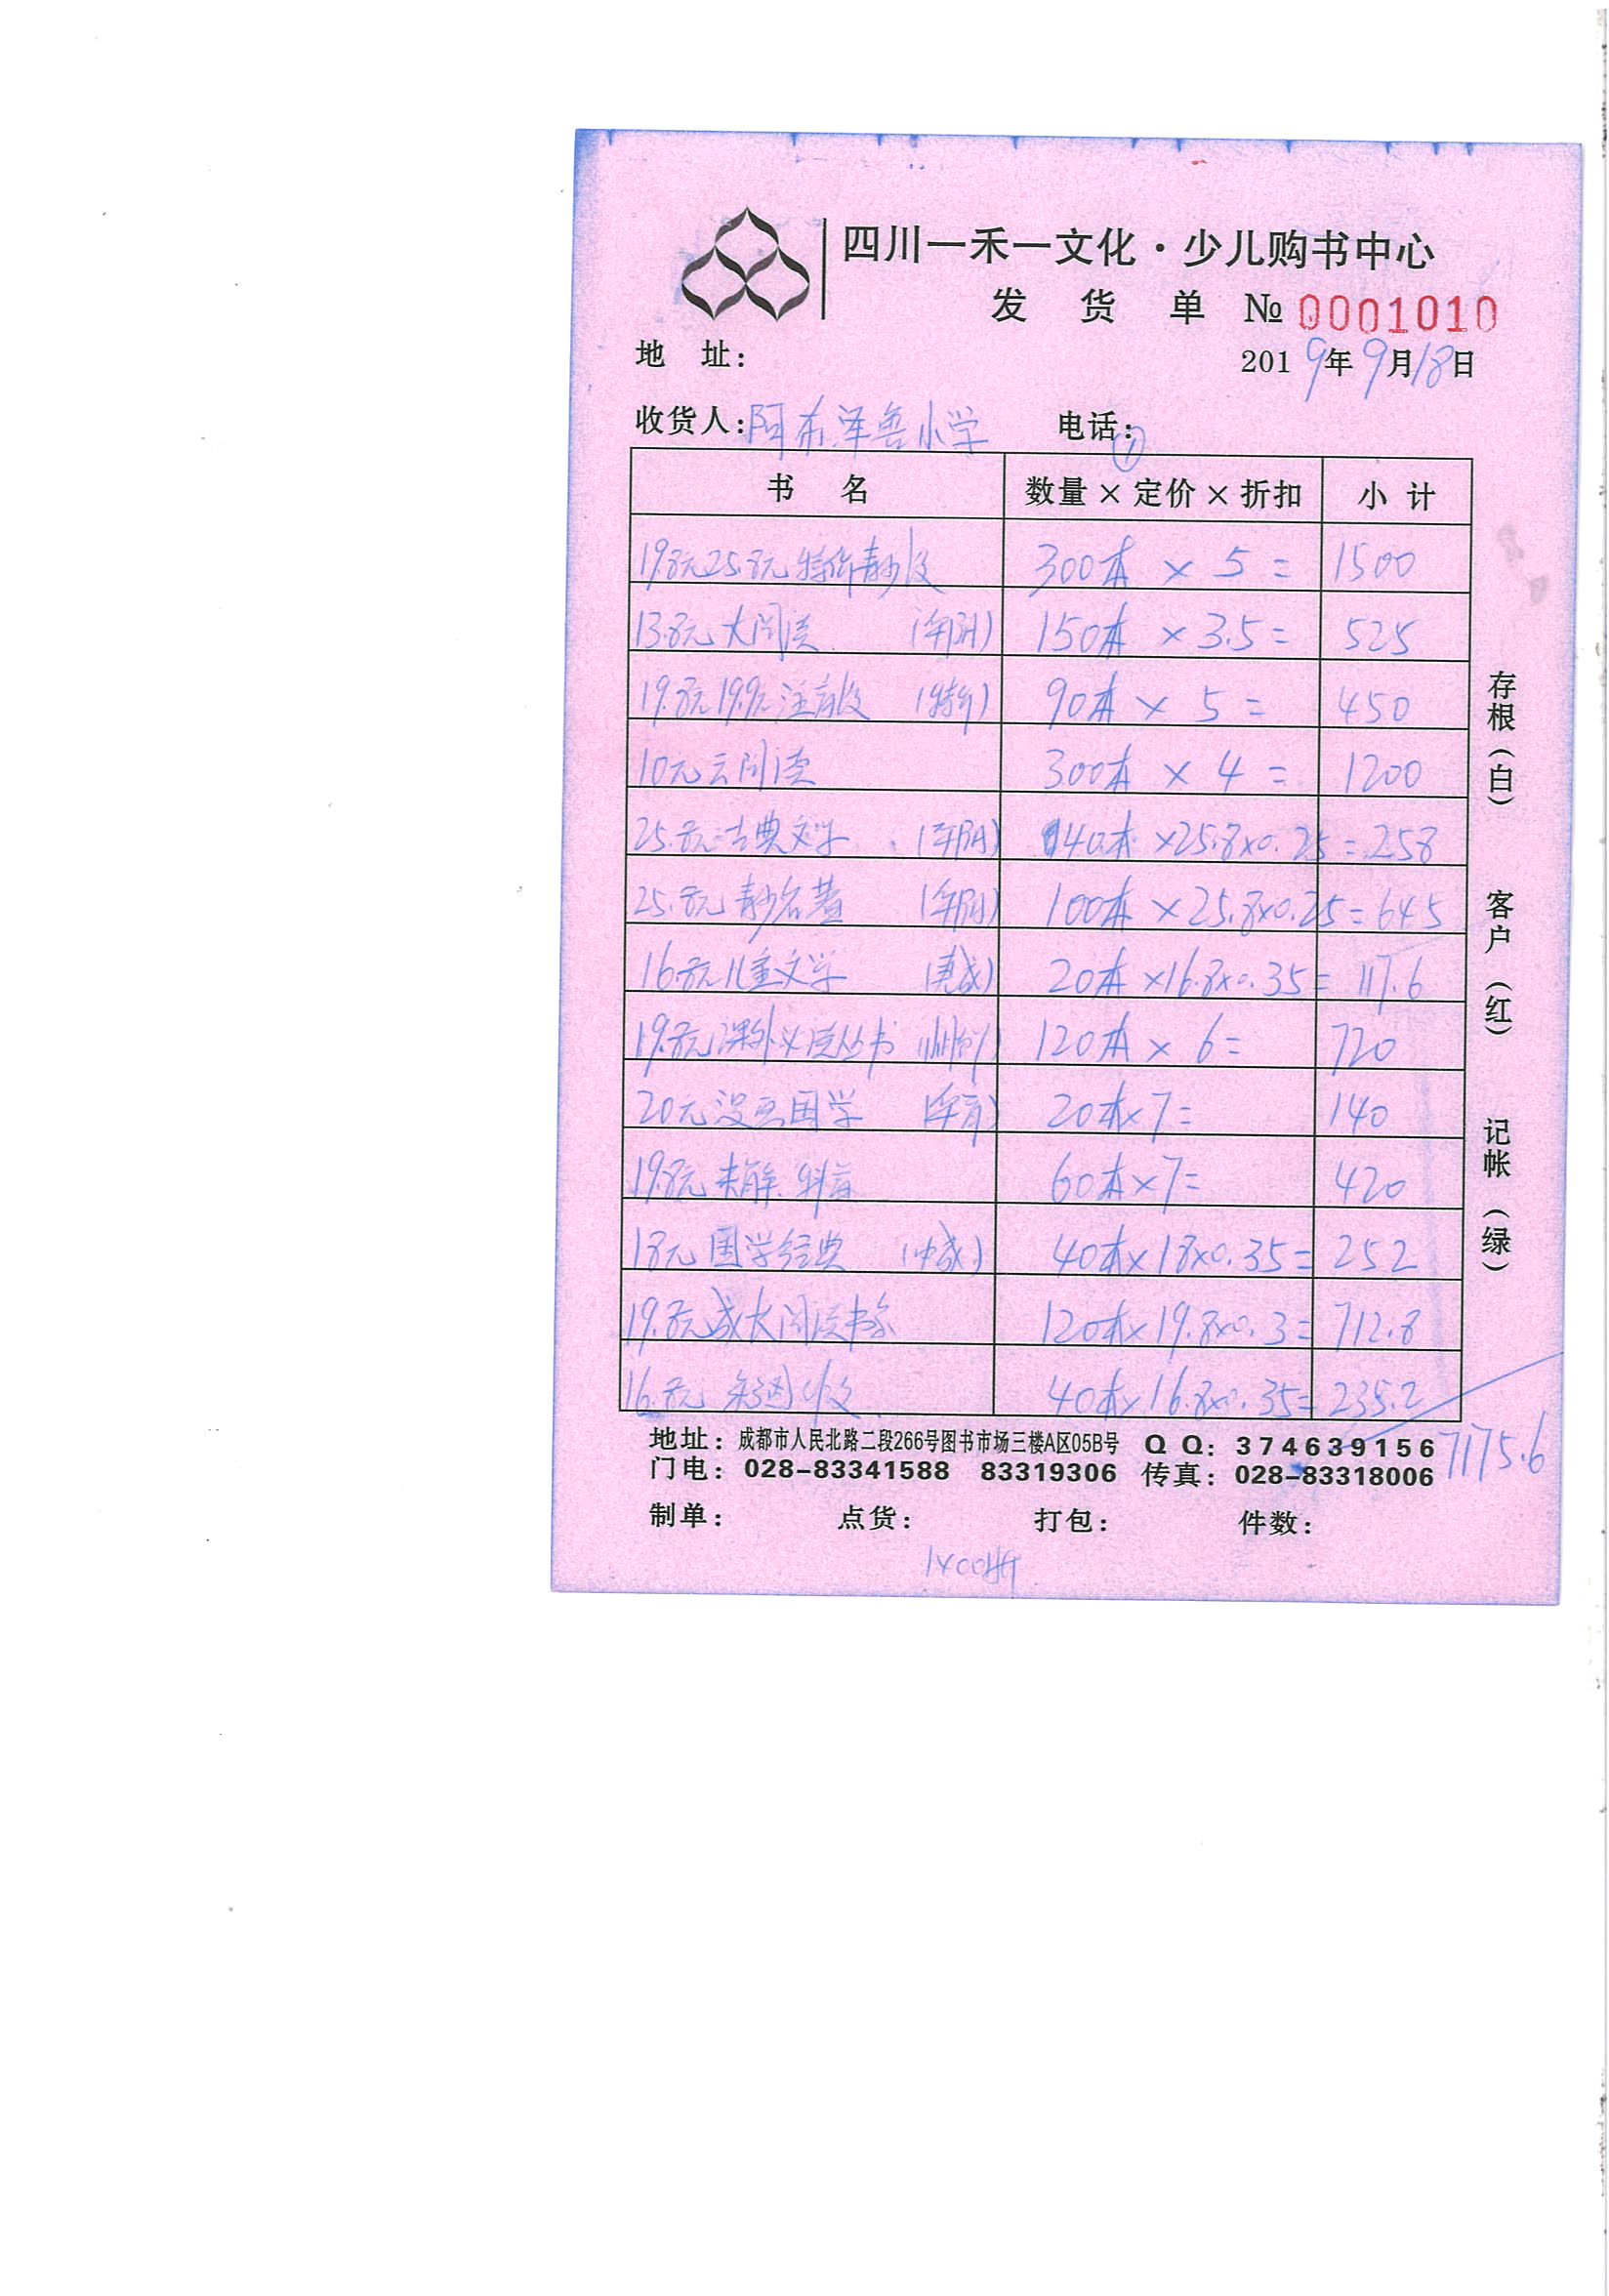 四川一禾一文化·少儿购书中心
发 货 单 № 0001010
地 址:
2019年9月18日
收货人: 阿布泽鲁小学 电话:
①
书 名 数量×定价×折扣 小 计
19.8元25.8元特价青少版 300本 × 5 = 1500
13.8元大阅读 150本 × 3.5 = 525
19.8元19.9元注音版 (特价) 90本 × 5 = 450
10元云阅读 300本 × 4 = 1200
25.8元古典文学 40本 ×25.8×0.25=258
25.8元青少名著 100本 ×25.8×0.25=645
16.8元儿童文学 20本 ×16.8×0.35= 117.6
19.8元课外必读丛书 120本 × 6= 720
20元 国学 20本×7= 140
19.8元未解 60本×7= 420
18元国学经典 40本×18×0.35= 252
19.8元成大阅读书系 120本×19.8×0.3= 712.8
16.8元 40本×16.8×0.35= 235.2
7175.6
存根(白) 客户(红) 记帐(绿)
地址:成都市人民北路二段266号图书市场三楼A区05B号 Q Q: 374639156
门电: 028-83341588 83319306 传真: 028-83318006
制单: 点货: 打包: 件数:
1400册